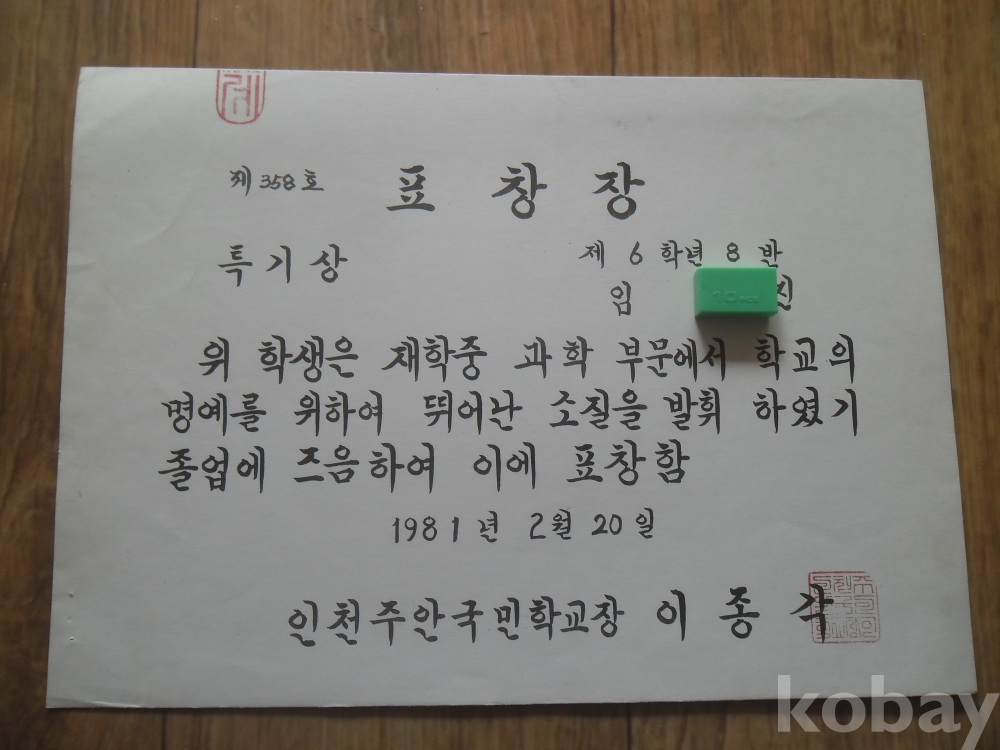 제 358 호
표 창 장
특기상
제 6 학년 8 반
임 진
위 학생은 재학중 과학 부문에서 학교의
명예를 위하여 뛰어난 소질을 발휘 하였기
졸업에 즈음하여 이에 표창함
1981년 2월 20일
인천주안국민학교장 이 종 각
kobay